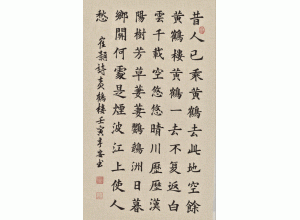 昔人已乘黃鶴去此地空餘
黃鶴樓黃鶴一去不復返白
雲千載空悠悠晴川歷歷漢
陽樹芳草萋萋鸚鵡洲日暮
鄉關何處是煙波江上使人
愁 崔顥詩黃鶴樓壬寅年